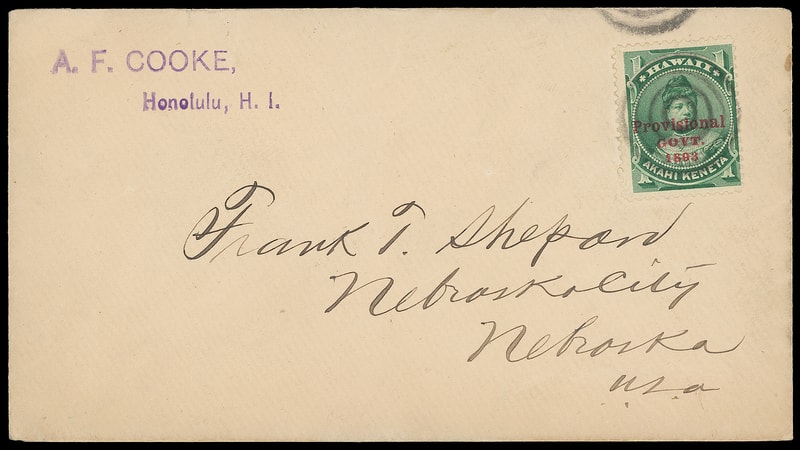 A. F. COOKE,
Honolulu, H. I.
1 HAWAII 1
Provisional
GOVT.
1893
AKAHI KENETA
Frank T. Shepard
Nebraska City
Nebraska
USA